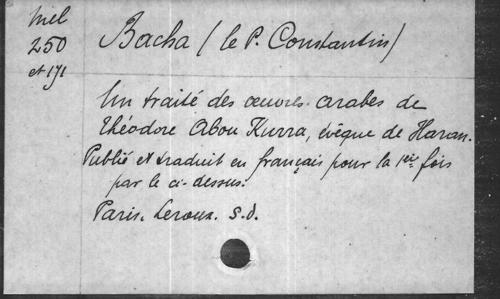 Mel
250
et 171
Bacha (le P. Constantin)
Un traité des œuvres arabes de
Théodore Abou Kurra, évêque de Haran.
Publié et traduit en français pour la 1ère fois
par le ci-dessus.
Paris. Leroux. s.d.